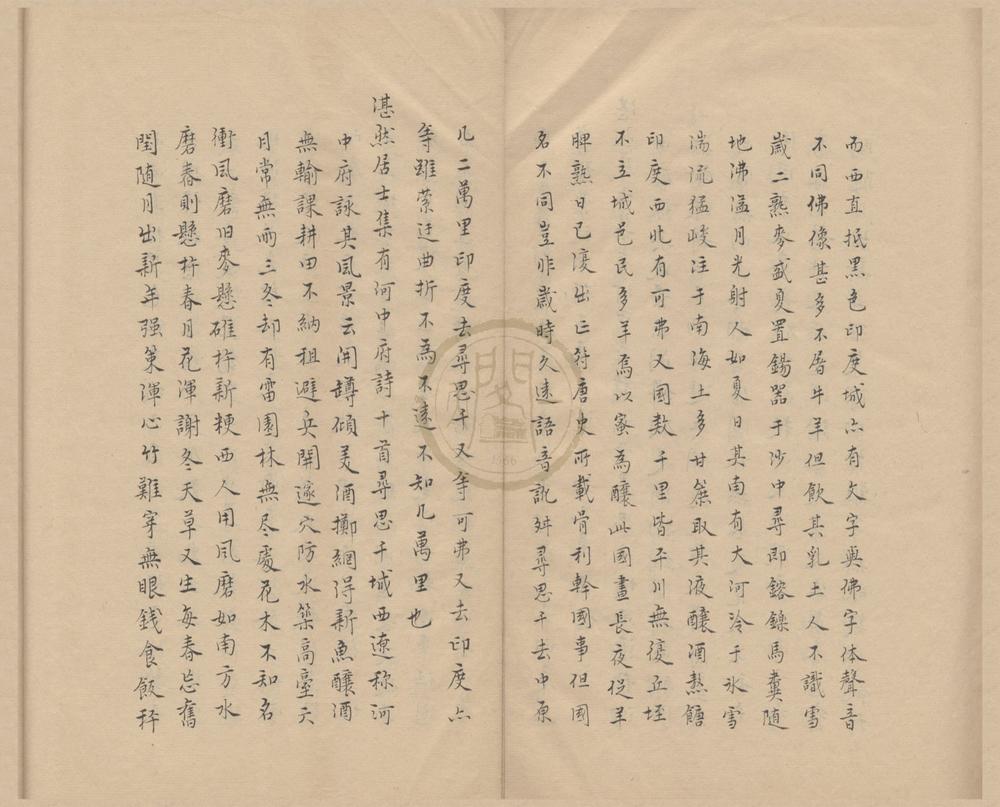 而西直抵黑色印度城亦有文字與佛字体聲音
不同佛像甚多不屠牛羊但飲其乳土人不識雪
歲二熟麥盛夏置錫器于沙中尋即鎔鑠馬糞随
地沸溢月光射人如夏日其南有大河冷于氷雪
湍流猛峻注于南海土多甘蔗取其液釀酒熬餹
印度西北有可弗义國数千里皆平川無復丘垤
不立城邑民多羊馬以蜜為釀此國晝長夜促羊
脾熟日已復出正符唐史所載骨利幹國事但國
名不同豈非歲時久遠語音訛舛尋思干去中原
凡二萬里印度去尋思干又等可弗义去印度亦
等雖縈迂曲折不為不遠不知几萬里也
湛然居士集有河中府詩十首尋思干城西遼称河
中府詠其風景云開罇傾美酒擲網得新魚釀酒
無輸課耕田不納租避兵開邃穴防水築高臺六
月常無雨三冬却有雷園林無尽處花木不知名
衝風磨旧麥懸碓杵新粳西人用風磨如南方水
磨舂則懸杵春月花渾謝冬天草又生每春忘舊
閏随月出新年强策渾心竹難穿無眼錢食飯秤
閱
1566